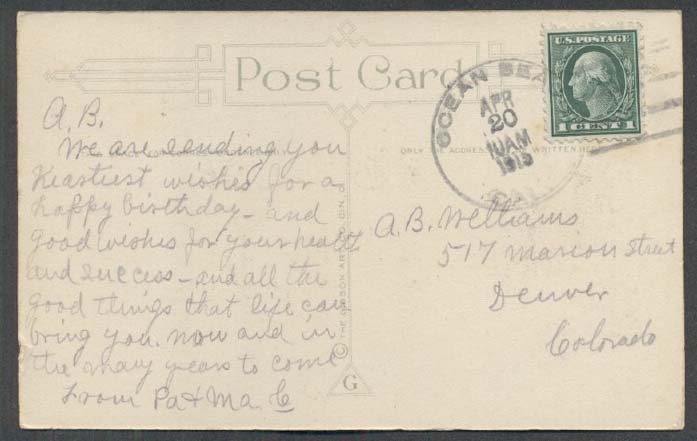 Post Card
U.S. POSTAGE
1 CENT 1
OCEAN BEA
APR
20
10AM
1915
CAL.
A.B.
We are sending you
Heartiest wishes for a
happy birthday - and
good wishes for your health
and success - and all the
good things that life can
bring you now and in
the many years to come
From Pa & Ma C
ONLY ADDRESS WRITTEN HERE
A. B. Williams
517 Marion Street
Denver
Colorado
© THE GIBSON ART CO. CIN. O.
G